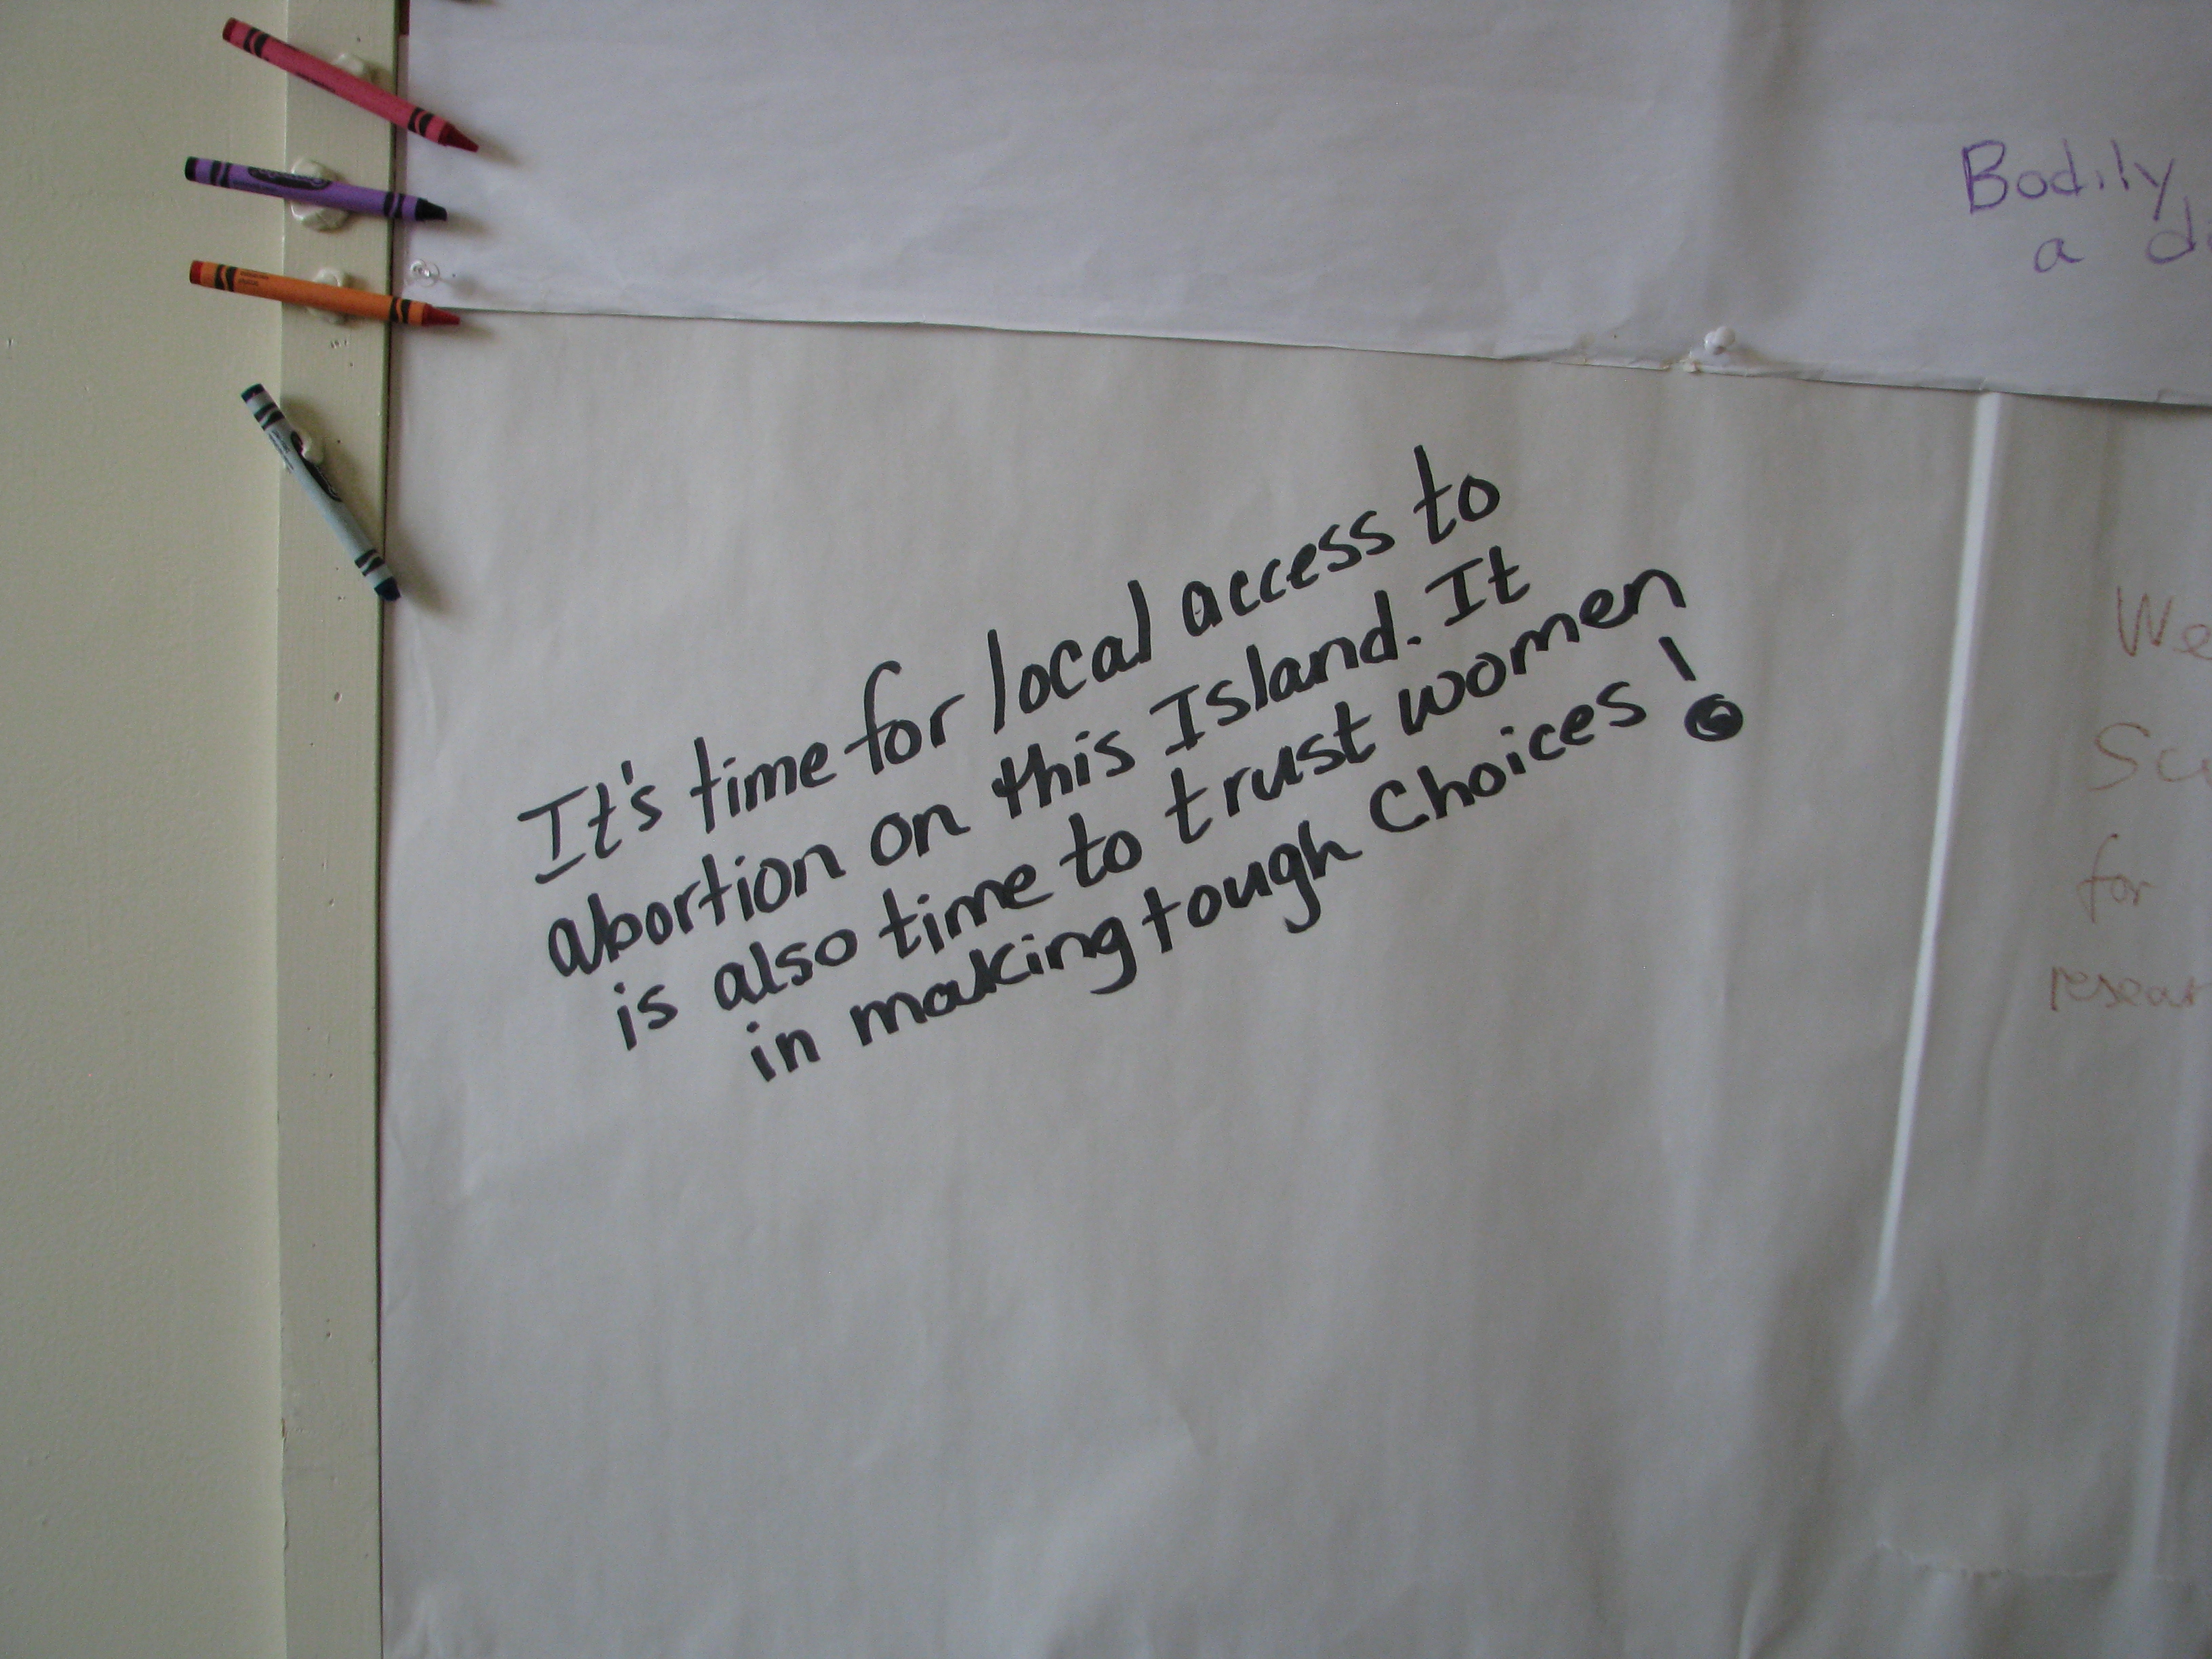 Bodily
a
It's time for local access to
abortion on this Island. It
is also time to trust women
in making tough Choices!
We
for